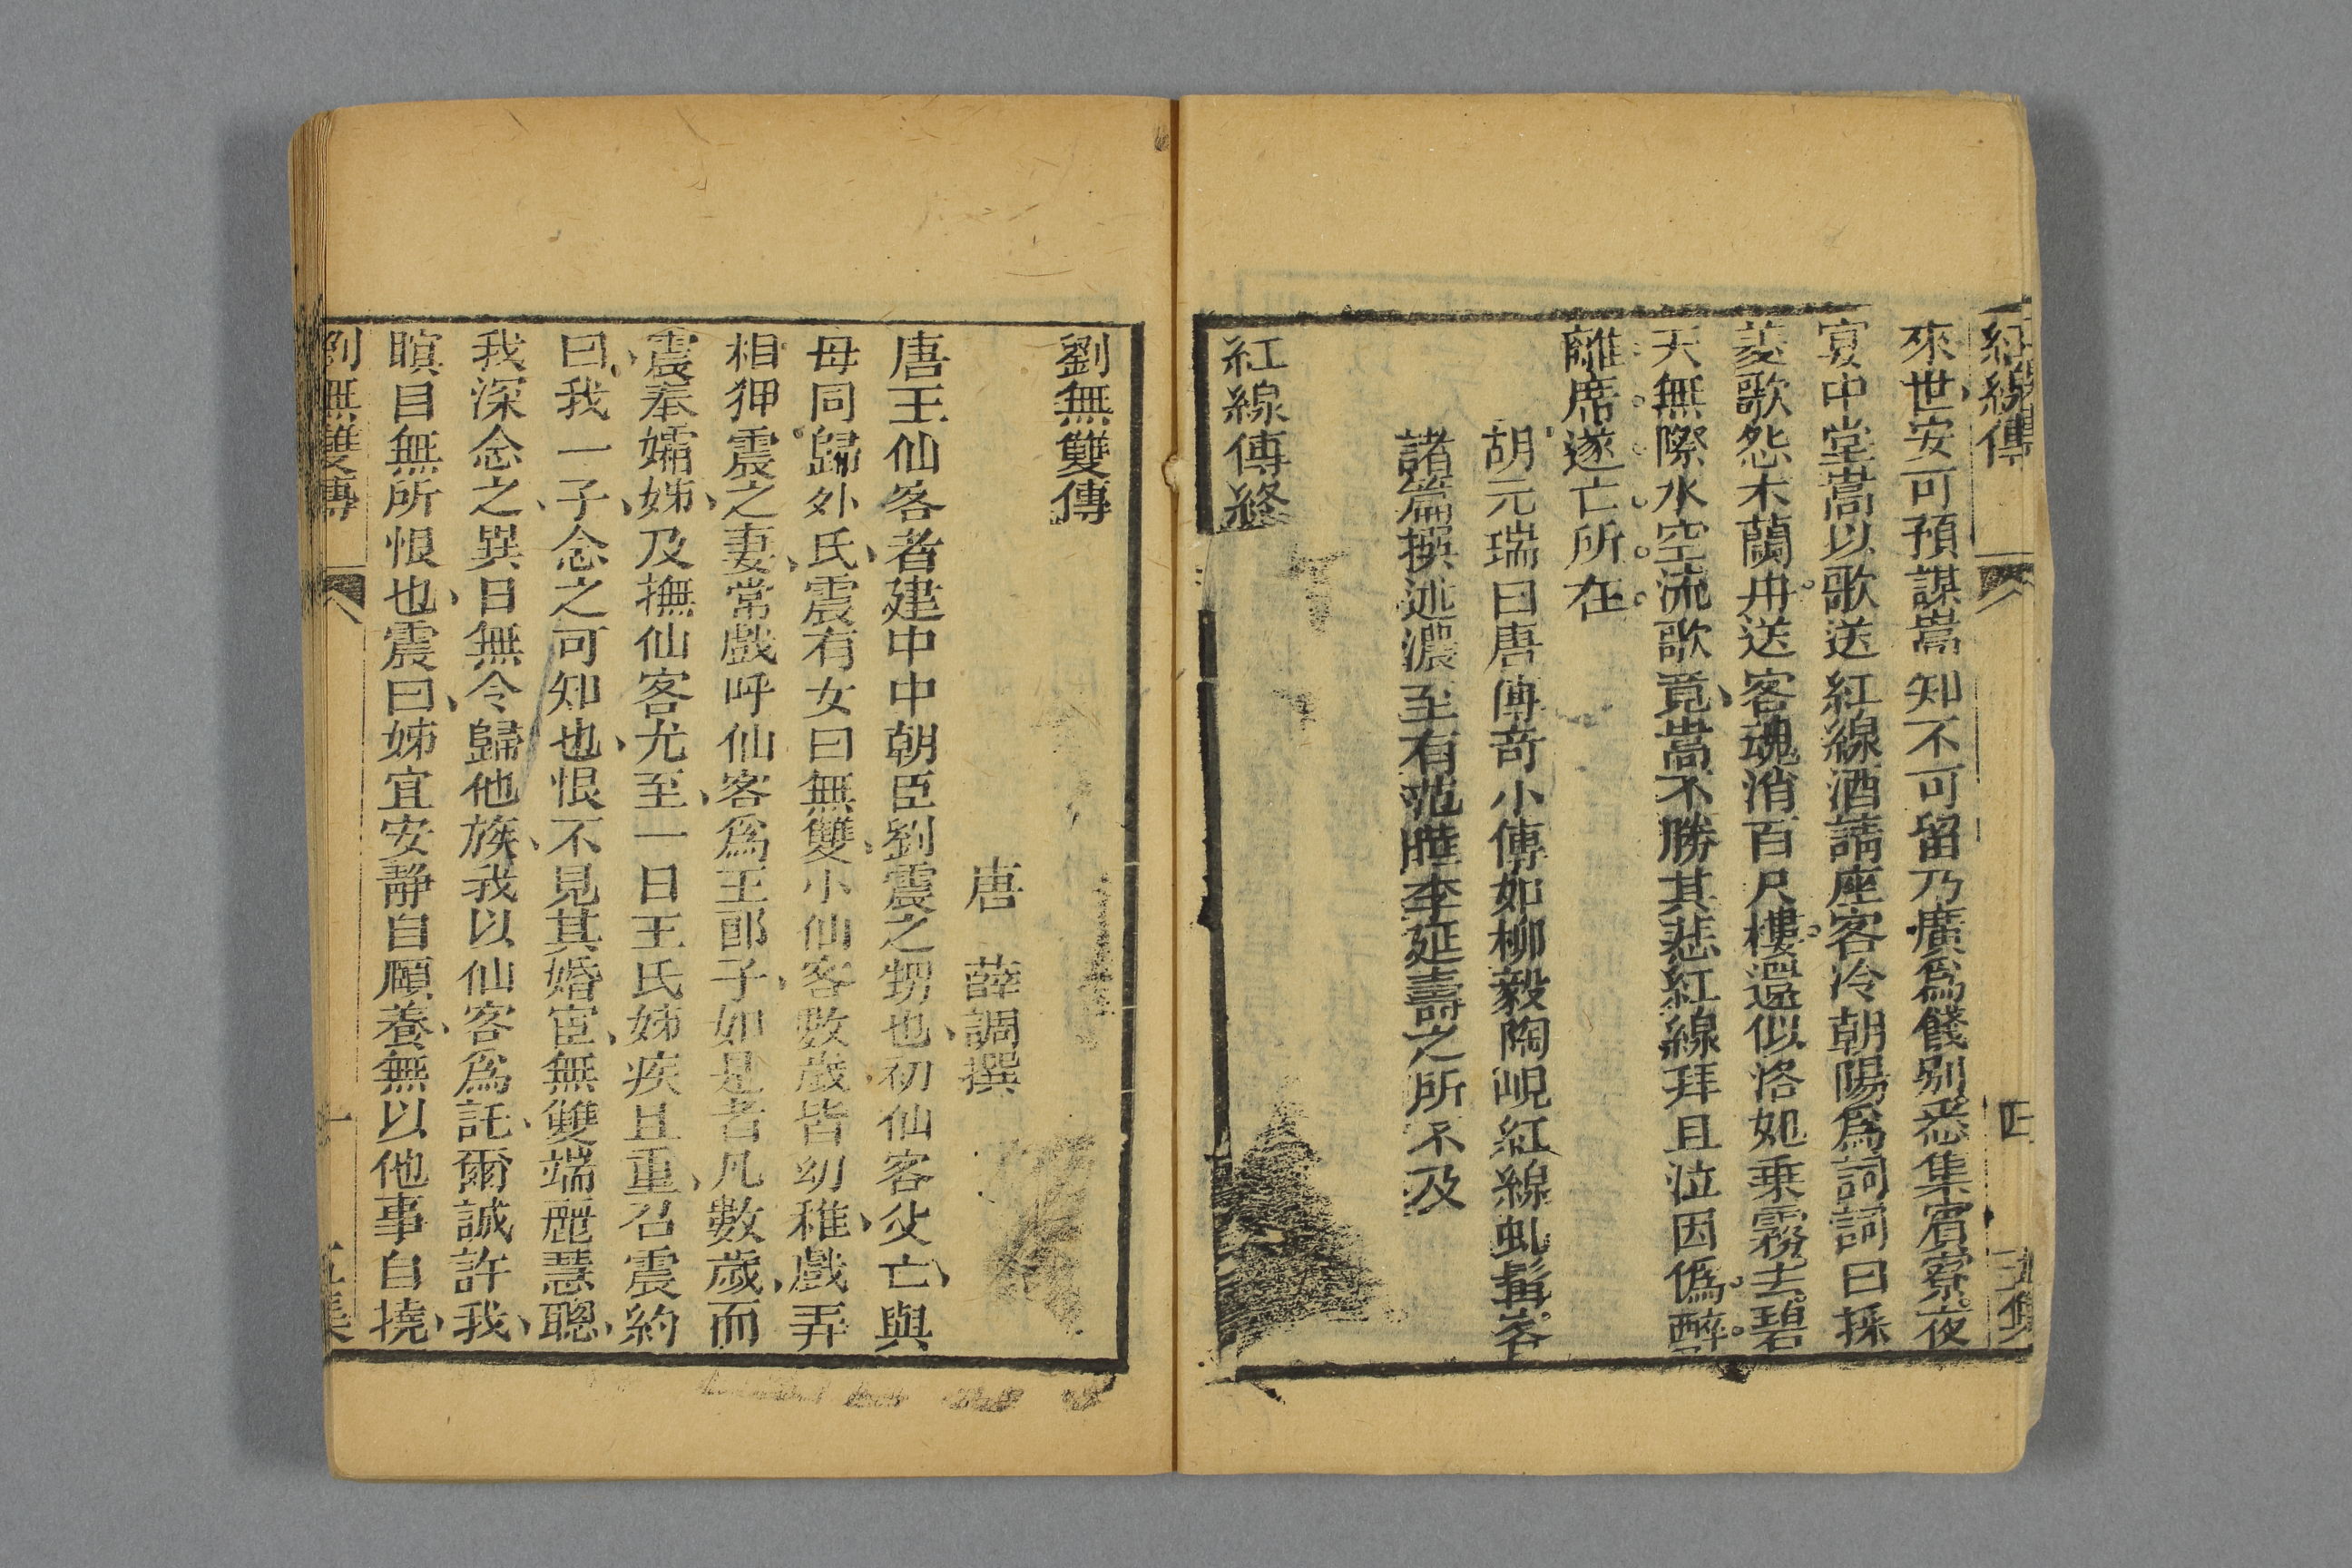 紅線傳
四
五集
來世安可預謀嵩知不可留乃廣爲餞别悉集賓寮夜
宴中堂嵩以歌送紅線酒請座客冷朝陽爲詞詞曰採
菱歌怨木蘭舟送客魂消百尺樓還似洛妃乗霧去碧
天無際水空流歌竟嵩不勝其悲紅線拜且泣因僞醉
離席遂亡所在
胡元瑞曰唐傳奇小傳如柳毅陶峴紅線虬髯客
諸篇撰述濃至有范曄李延壽之所不及
紅線傳終
劉無雙傳
唐 薛調撰
唐王仙客者建中中朝臣劉震之甥也初仙客父亡與
母同歸外氏震有女曰無雙小仙客數歲皆幼稚戲弄
相狎震之妻常戲呼仙客爲王郎子如是者凡數歲而
震奉孀姊及撫仙客尤至一日王氏姊疾且重召震約
曰我一子念之可知也恨不見其婚宦無雙端麗慧聰
我深念之異日無令歸他族我以仙客爲託爾誠許我
瞑目無所恨也震曰姊宜安靜自頤養無以他事自撓
劉無雙傳
一
五集